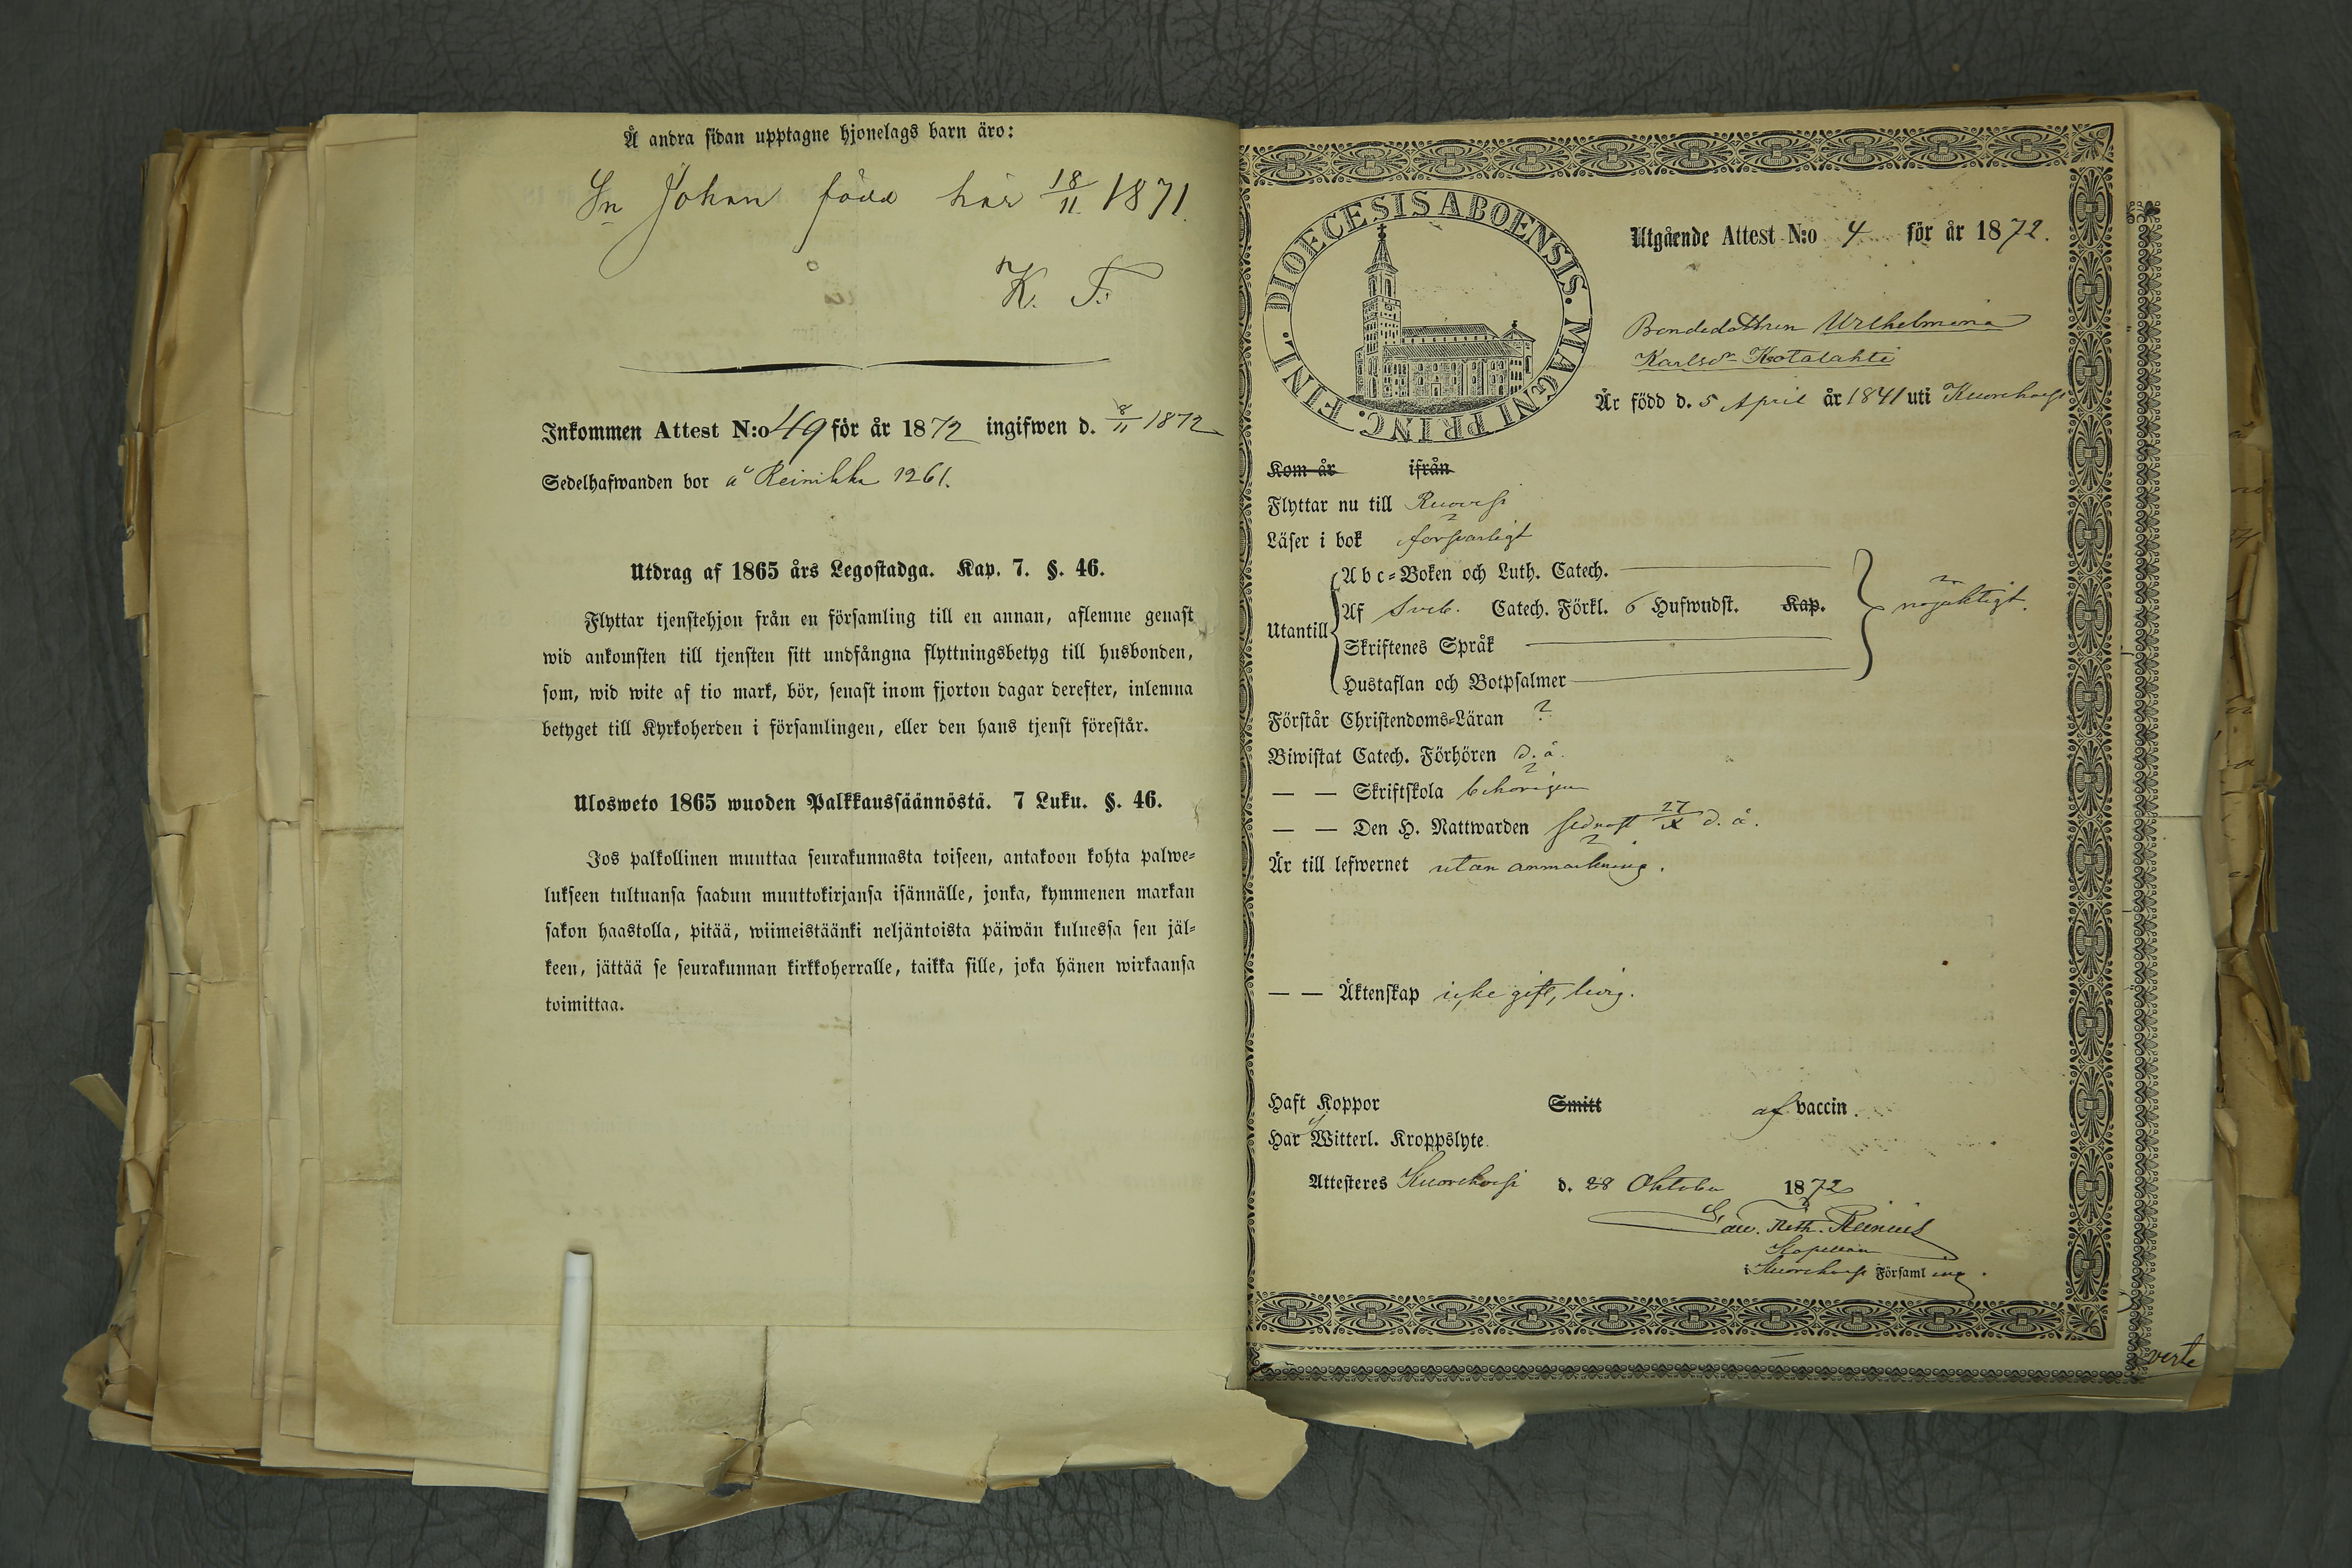 Å andra sidan upptagne hjonelags barn äro:
Sn Johan född här 18/11 1871.
K. F.
Inkommen Attest N:o 49 för år 1872 ingifwen d. 8/11 1872
Sedelhafwanden bor å Reinikka 1261.
Utdrag af 1865 års Legostadga. Kap. 7. §. 46.
Flyttar tjenstehjon från en församling till en annan, aflemne genast
wid ankomsten till tjensten sitt undfångna flyttningsbetyg till husbonden,
som, wid wite af tio mark, bör, senast inom fjorton dagar derefter, inlemna
betyget till Kyrkoherden i församlingen, eller den hans tjenst förestår.
Ulosweto 1865 wuoden Palkkaussäännöstä. 7 Luku. §. 46.
Jos palkollinen muuttaa seurakunnasta toiseen, antakoon kohta palwe-
lukseen tultuansa saadun muuttokirjansa isännälle, jonka, kymmenen markan
sakon haastolla, pitää, wiimeistäänki neljäntoista päiwän kuluessa sen jäl-
keen, jättää se seurakunnan kirkkoherralle, taikka sille, joka hänen wirkaansa
toimittaa.
DIOECESIS ABOENSIS. MAGNI PRINC. FINL.
Utgående Attest N:o 4 för år 1872.
Bondedottren Wilhelmina
Karlsdr Kotalahti
Är född d. 5 April år 1841 uti Kuorehvesi
Kom år ifrån
Flyttar nu till Ruovesi
Läser i bok försvarligt
Utantill
Abc-Boken och Luth. Catech.
Af Sveb. Catech. Förkl. 6 Hufwudst. Kap.
nöjaktigt.
Skriftenes Språk
Hustaflan och Botpsalmer
Förstår Christendoms-Läran
Biwistat Catech. Förhören d. å.
— — Skriftskola behörigen
— — Den H. Nattwarden sednast 27/X d. å.
Är till lefwernet utan anmärkning.
— — Äktenskap icke gift, ledig.
Haft Koppor Smitt af vaccin.
Har Witterl. Kroppslyte
Attesteres Kuorehvesi d. 28 Oktober 1872
Reinius
Kapellan
i Kuorehvesi Församling.
verte